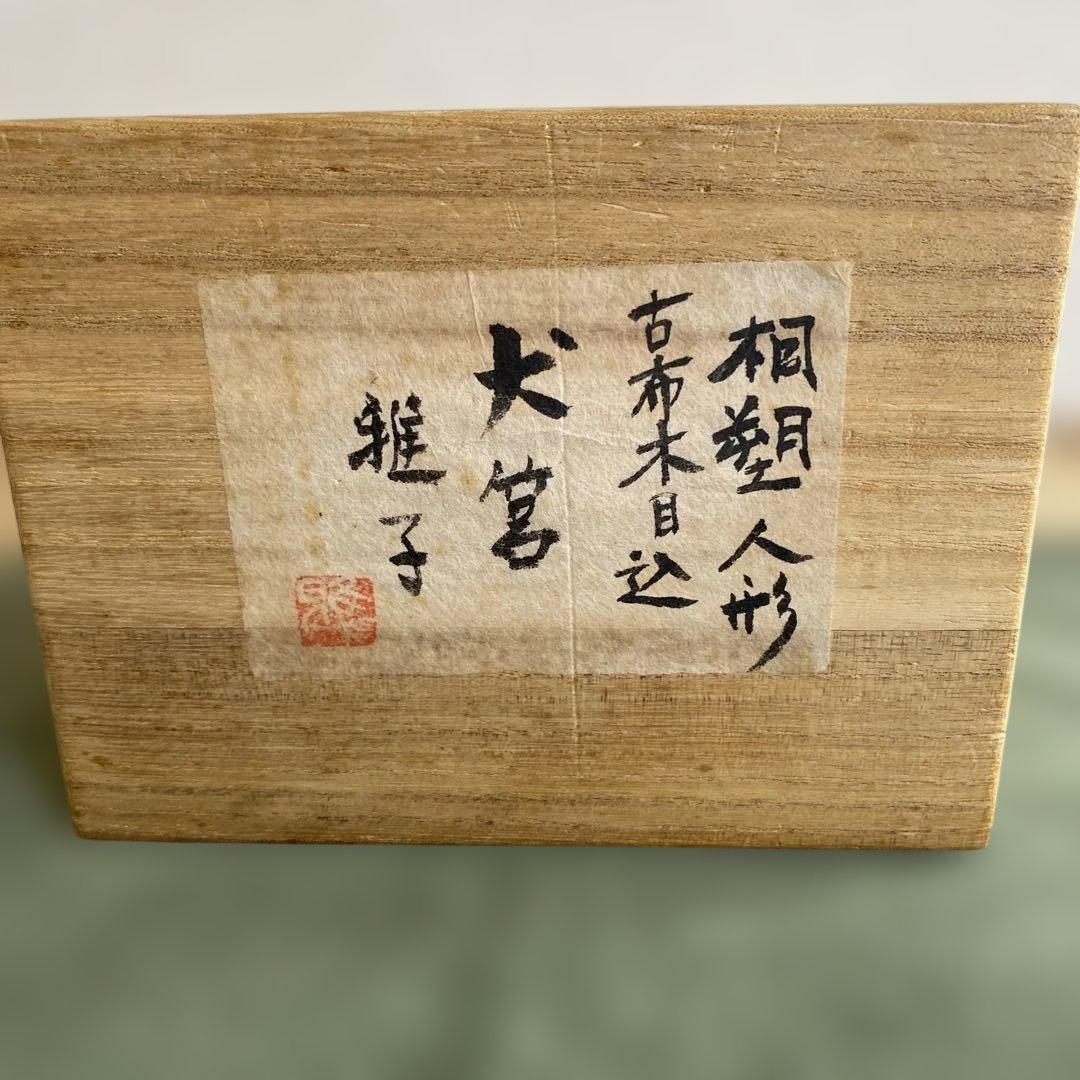 桐塑人形
古布木目込
犬筥
雅子